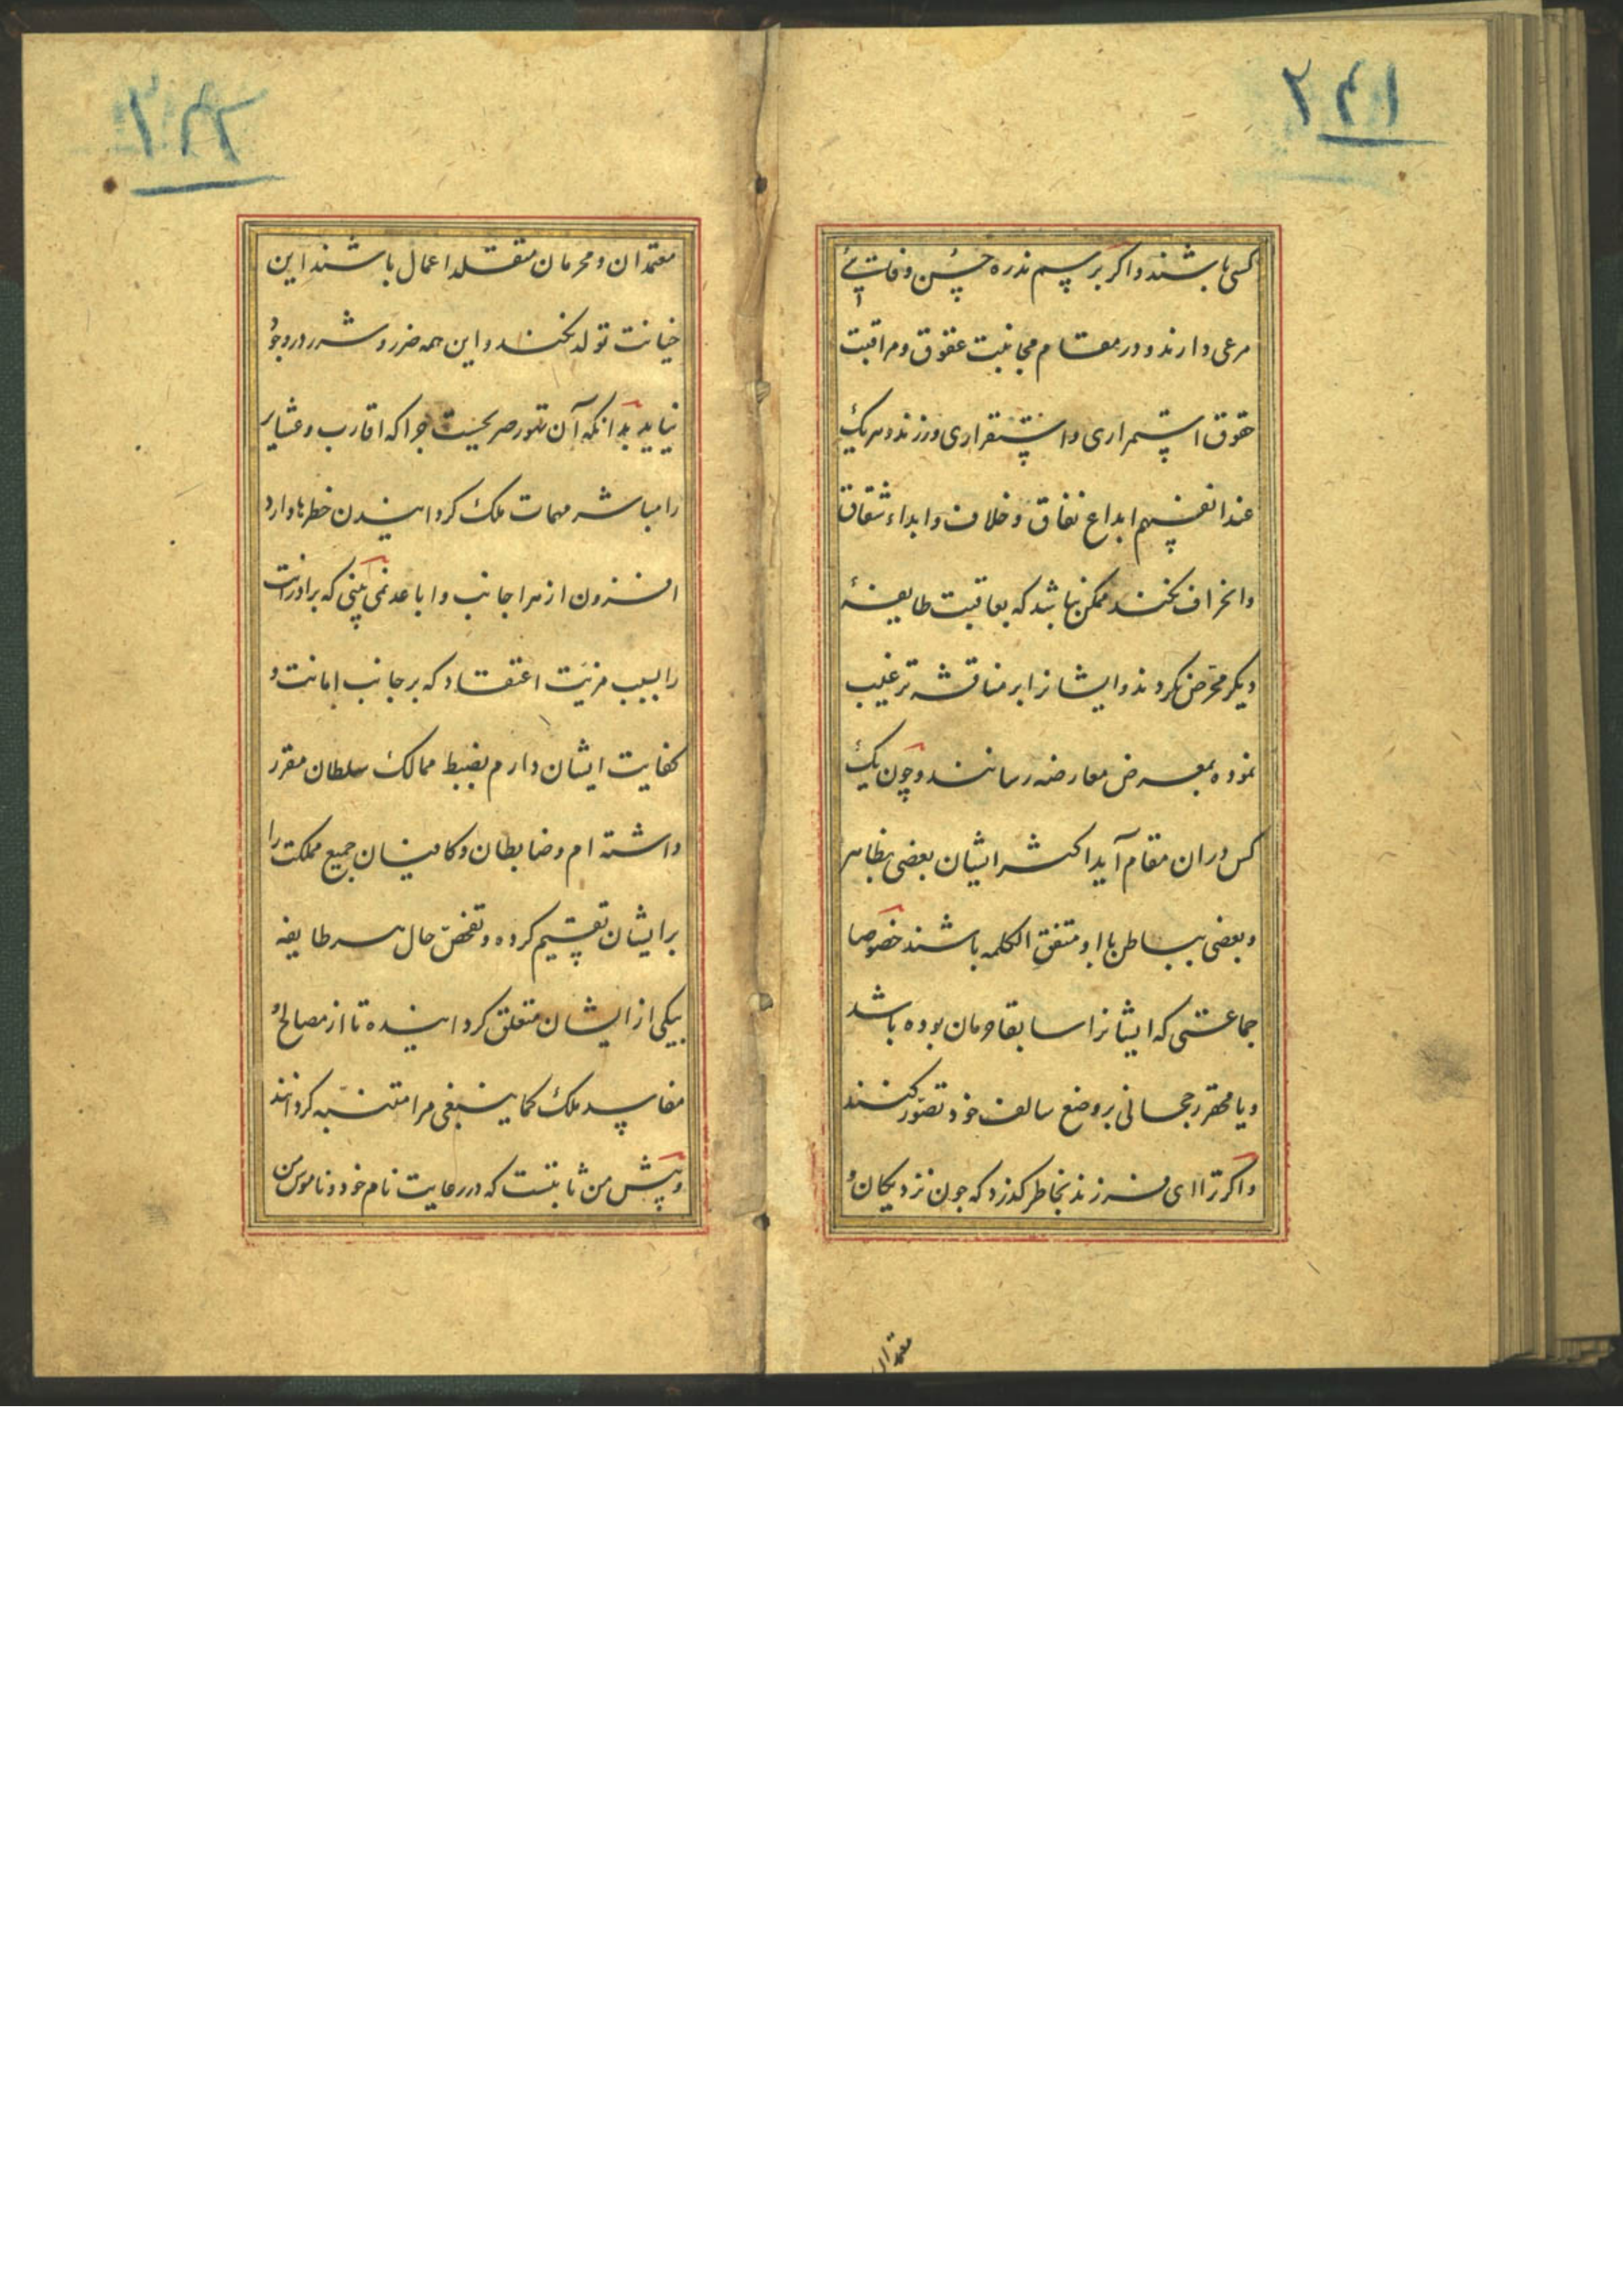 ۲۴۱
کسی باشند و اگر بر سبیل ندره حسن وفایی
مرعی دارند و در مقام مجانبت عقوق و مراقبت
حقوق استمراری و استقراری ورزند و هر یک
عند انفسهم ابداع نفاق و خلاف و ابداء شقاق
و انحراف نکنند ممکن نباشد که بعاقبت طایفهٔ
دیگر محرض نکردند و ایشانرا بر مناقشه ترغیب
نموده بمعرض معارضه رسانند و چون یک
کس دران مقام آید اکثر ایشان بعضی بظاهر
و بعضی بباطن با او متفق الکلمه باشند خصوصا
جماعتی که ایشانرا سابقا حرمان بوده باشد
و یا محقر رجحانی بر وضع سالف خود تصور کنند
و اگر ترا ای فرزند بخاطر کذرد که چون نزدیکان و
معتمدان
۲۴۲
معتمدان و محرمان متقلد اعمال باشند این
خیانت تولد نکند و این همه ضرر و شرر در وجود
نیاید بدانکه آن تصور صحیح نیست چرا که اقارب و عشایر
را مباشر مهمات ملک کردانیدن خطرها دارد
افزون از هر اجانب و اباعد نمی بینی که برادرانت
را بسبب مزیت اعتقاد که بر جانب امانت و
کفایت ایشان دارم بضبط ممالک سلطان مقرر
داشته ام و ضابطان و کافیان جمیع مملکت را
بر ایشان تقسیم کرده و تفحص حال هر طایفه
بیکی از ایشان متعلق کردانیده تا از مصالح و
مفاسد ملک کما ینبغی مرا متنبه کردانند
و پیش من ثابتست که در رعایت نام خود و ناموس من